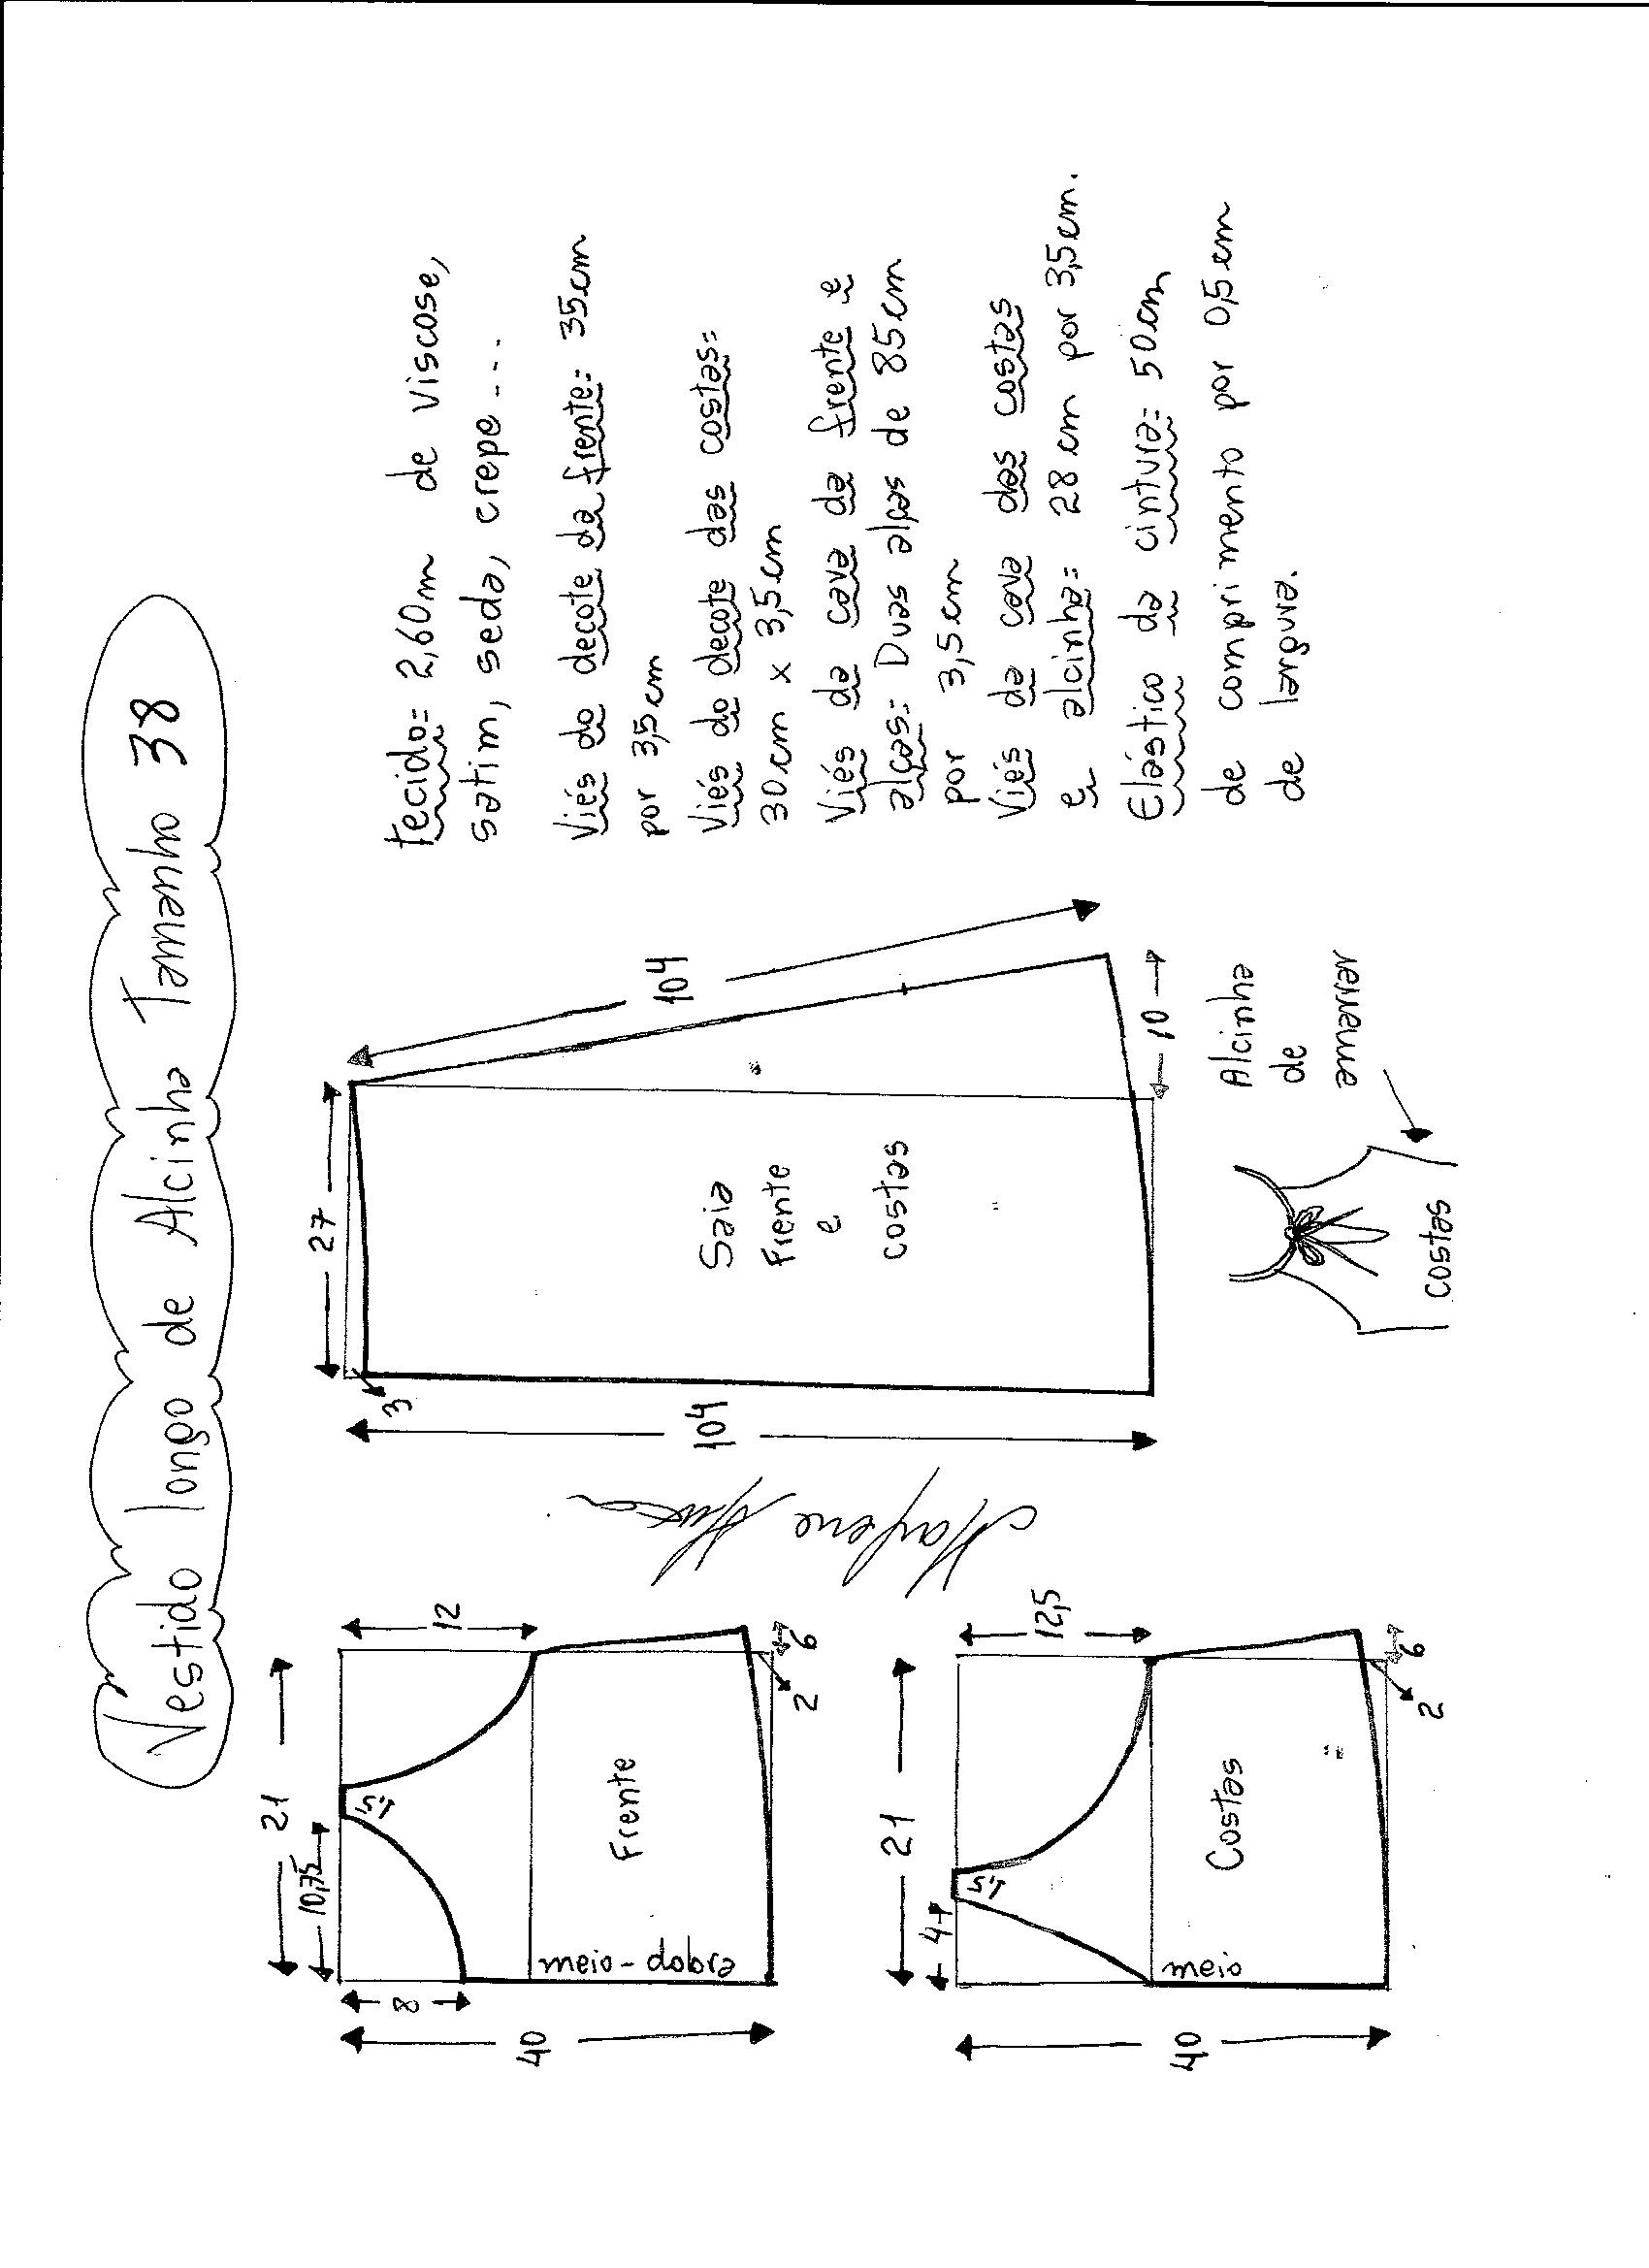 Vestido longo de Alcinha Tamanho 38
21
10,75
8
40
12
1,5
Frente
meio-dobra
6
2
21
4
40
12,5
1,5
Costas
meio
6
2
Marlene
27
3
104
104
Saia
Frente
e
costas
10
Alcinha
de
amarrar
costas
tecido: 2,60m de viscose,
satim, seda, crepe...
Viés do decote da frente: 35cm
por 3,5cm
Viés do decote das costas:
30cm x 3,5cm
Viés da cava da frente e
alças: Duas alças de 85cm
por 3,5cm
Viés da cava das costas
e alcinha: 28cm por 3,5cm.
Elástico da cintura: 50cm
de comprimento por 0,5cm
de largura.